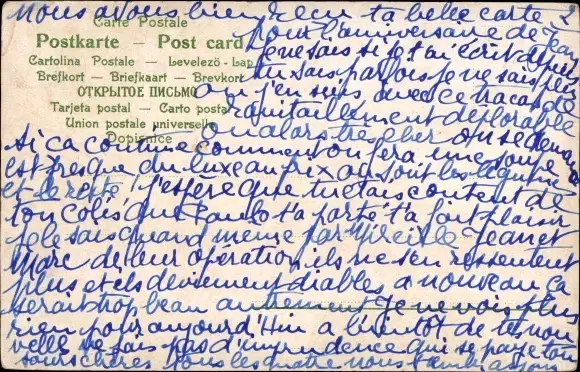 nous avons bien reçu ta belle carte
Carte Postale
pour l'anniversaire de Jean
Postkarte – Post card
je ne sais si je t'ai écrit depuis
Cartolina Postale – Levelezö-Lap
tu sais parfois je ne sais plus
Brefkort – Briefkaart – Brevkort
où j'en suis avec ce tracas de
ОТКРЫТОЕ ПИСЬМО
ravitaillement déplorable
Tarjeta postal – Carto postal
Union postale universelle
ou alors très cher on se demande
Dopisnice
si ça continue comment on fera une soupe
est presque du luxe au prix ou sont les légumes
et le reste! j'espère que tu étais content de
ton colis que Paulo t'a porté t'a fait plaisir
je le sais quand même par Mireille Jean et
Marc de leur opération ils ne s'en ressentent
plus et ils deviennent diables à nouveau ça
serait trop beau autrement je ne vois plus
rien pour aujourd'hui à bientôt de tes nou
velle ne fais pas d'imprudence qui se paye ton
jours chères tous les quatre nous t'embrassons